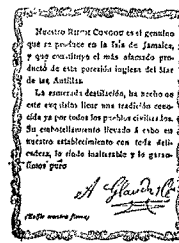 Nuestro Rhum Congou es el genuino
que se produce en la Isla de Jamaica,
y que constituye el más afamado pro-
ducto de esta posesión inglesa del Mar
de las Antillas.
La esmerada destilación, ha hecho de
este exquisito licor una tradición cono-
cida ya por todos los pueblos civilizados.
Su embotellamiento llevado á cabo en
nuestro establecimiento con toda deli-
cadeza, lo rinde inalterable y lo garan-
timos puro
A
(Exijir nuestra firma)